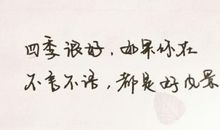 四季很好，如果你在
不言不语，都是好风景